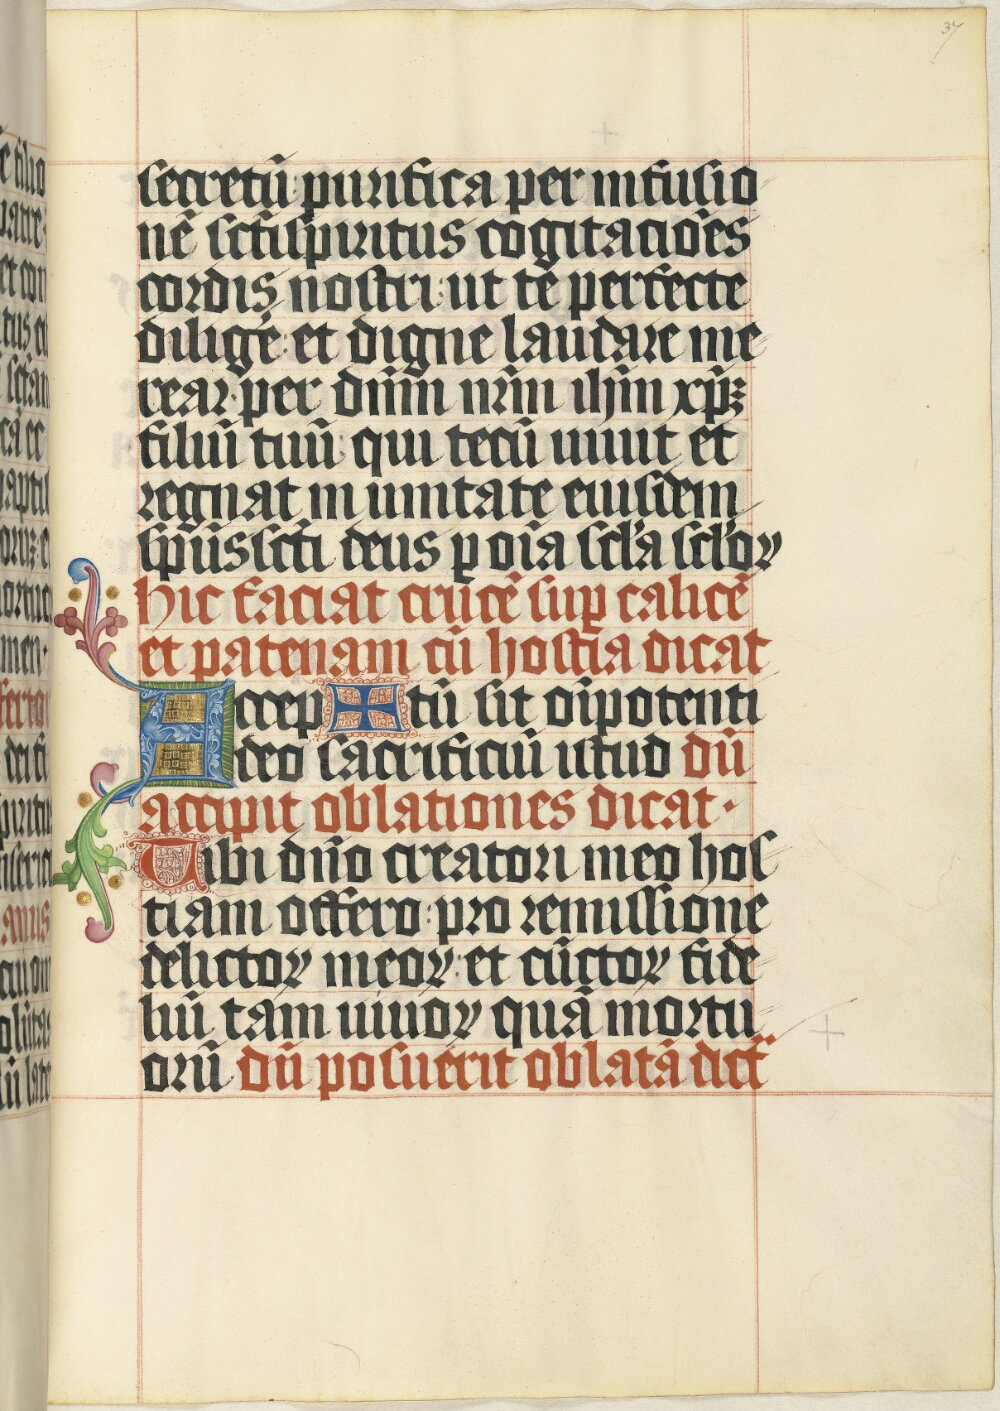 37
secretū: purifica per infusio
nē sctīspiritus cogitacio͞es
cordis nostri: ut te perfecte
diligē: et digne laudare me
rear: per dn̄m nr̄m ihm̄ xp̄ꝫ
filiū tuū: qui tecū uiuit et
regnat in unitate eiusdem
sp̄ussctī deus ꝑ oīa scl̄a scl̄oꝝ
hic faciat crucē suꝑ calicē
et patenam cū hostia dicat
Accep✠tū sit oīpotenti
deo sacrificiū istud dū
accipit oblationes dicat·
Tibi dn̄o creatori meo hos
tiam offero: pro remissione
delictoꝝ meoꝝ: et cūctoꝝ fide
liū tam uiuoꝝ quā mortu
orū dū posuerit oblatā dicat